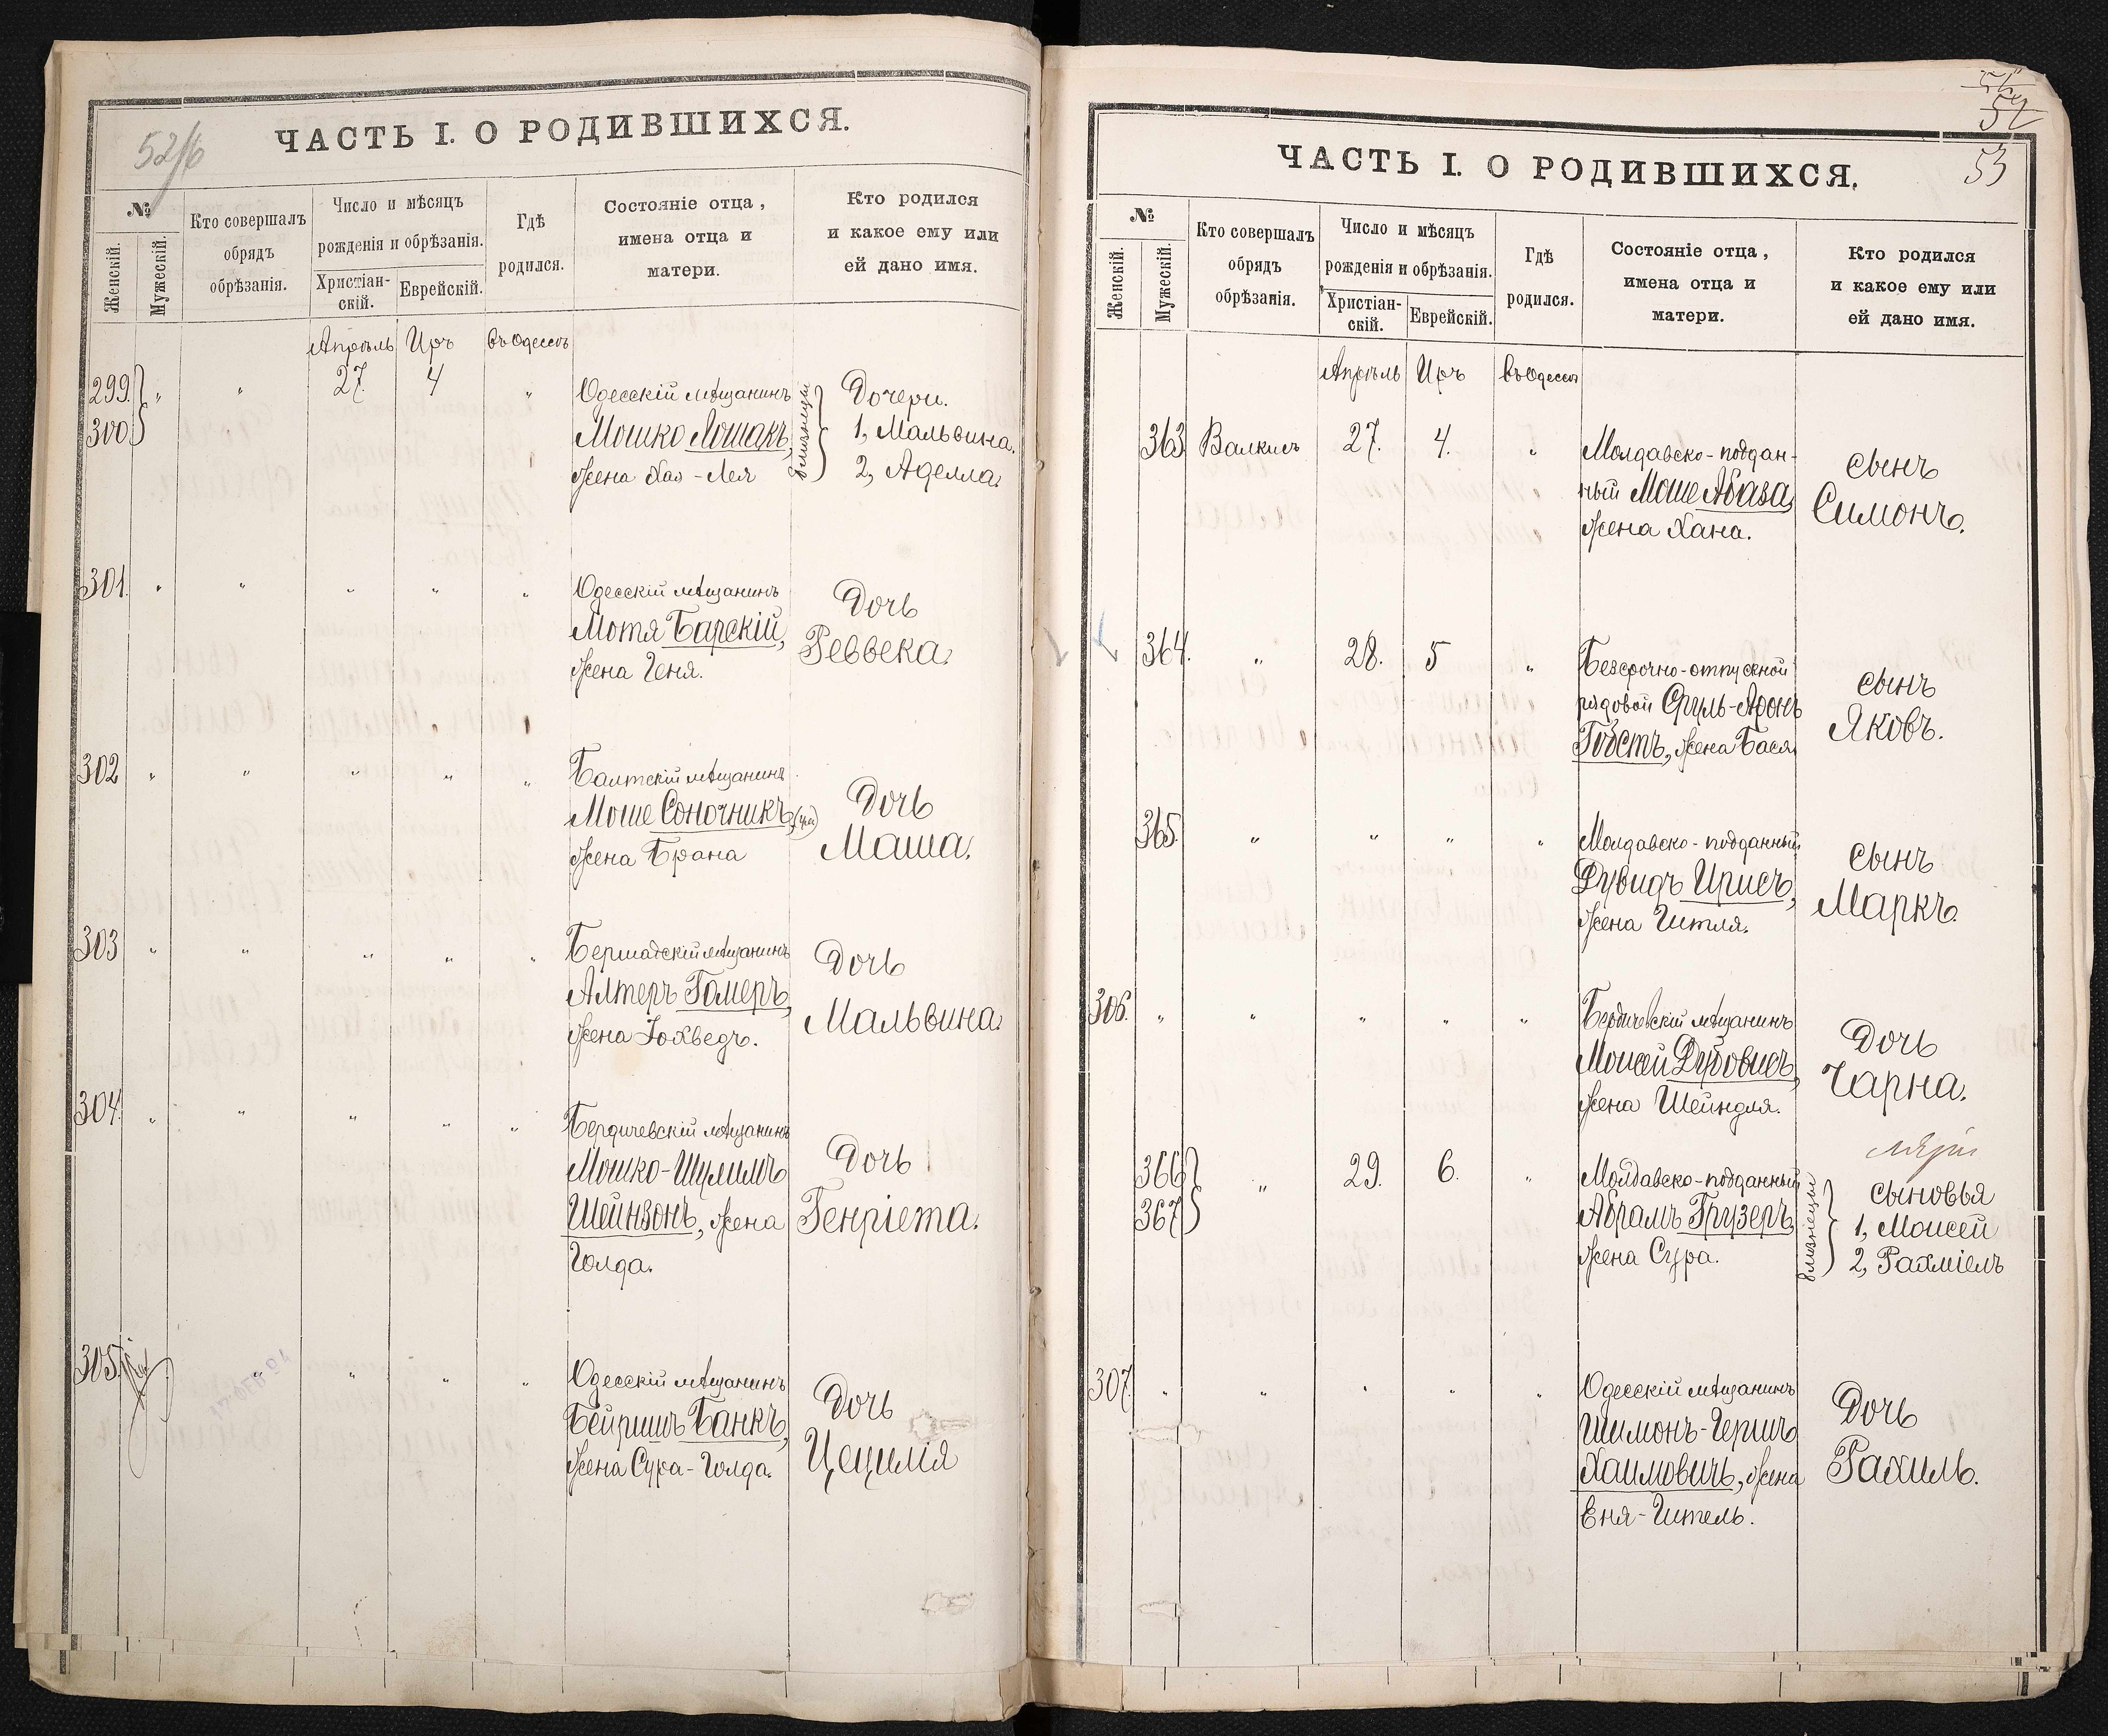 52/б
ЧАСТЬ I. О РОДИВШИХСЯ.
№
Женскій.
Мужескій.
Кто совершалъ
обрядъ
обрѣзанія.
Число и мѣсяцъ
рожденія и обрѣзанія.
Христіан-
скій.
Еврейскій.
Гдѣ
родился.
Состояніе отца,
имена отца и
матери.
Кто родился
и какое ему или
ей дано имя.
Апрѣль Иръ въ Одессѣ
299. 300 " " 27. 4 "
Одесскій мѣщанинъ
Мошко Лошакъ,
жена Хая-Лея
близнецы
Дочери.
1, Мальвина.
2, Аделла.
301. " " " " "
Одесскій мѣщанинъ
Мотя Барскій,
жена Геня.
Дочь
Реввека.
302 " " " " "
Балтскій мѣщанинъ
Моше Соночникъ,
жена Брана
Дочь
Маша.
303 " " " " "
Бершадскій мѣщанинъ
Алтеръ Гомеръ,
жена Іохведъ.
Дочь
Мальвина.
304. " " " " "
Бердичевскій мѣщанинъ
Мошко-Шулимъ
Шейнзонъ, жена
Голда.
Дочь
Генріета.
305. " " " "
Одесскій мѣщанинъ
Бейришъ Банкъ,
жена Сура-Голда.
Дочь
Цецилія
52
53
ЧАСТЬ I. О РОДИВШИХСЯ.
№
Женскій.
Мужескій.
Кто совершалъ
обрядъ
обрѣзанія.
Число и мѣсяцъ
рожденія и обрѣзанія.
Христіан-
скій.
Еврейскій.
Гдѣ
родился.
Состояніе отца,
имена отца и
матери.
Кто родился
и какое ему или
ей дано имя.
Апрѣль Иръ въ Одессѣ
363 Валкисъ 27. 4. "
Молдавско-поддан-
ный Моше Абаза,
жена Хана.
сынъ
Симонъ.
364. " 28. 5 "
Безсрочно-отпускной
рядовой Сруль-Аронъ
Гобстъ, жена Бася
сынъ
Яковъ.
365. " " " "
Молдавско-подданный
Дувидъ Ирисъ,
жена Гитля.
сынъ
Маркъ.
306. " " " " "
Бердичевскій мѣщанинъ
Моисей Дубовисъ,
жена Шейндля.
Дочь
Чарна.
366 367 " 29. 6. "
Молдавско-подданный
Абрамъ Грузеръ,
жена Сура.
близнецы
сыновья
1, Моисей
2, Рахміелъ
307. " " " " "
Одесскій мѣщанинъ
Шимонъ-Гершъ
Хаимовичъ, жена
Еня-Гитель.
Дочь
Рахиль.